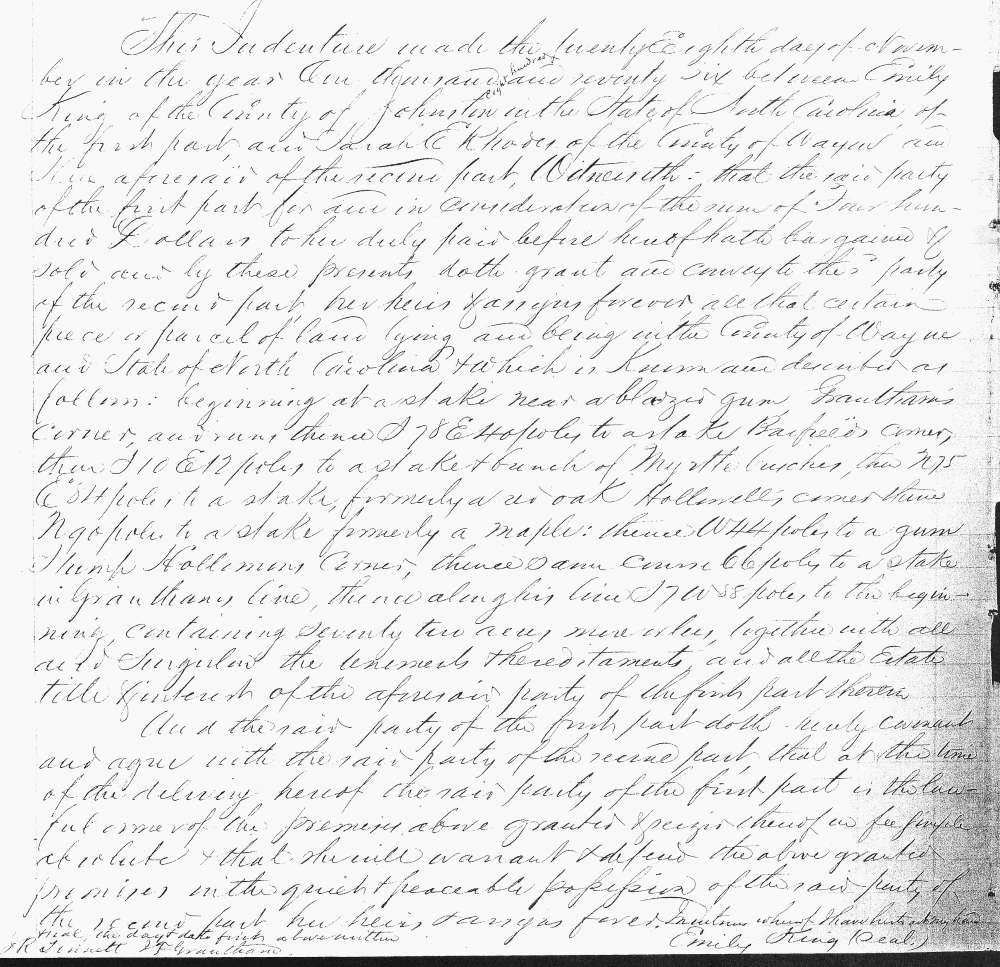 This Indenture made the twenty Eighth day of Novem-
ber in the year One thousand eight hundred and seventy six between Emily
King of the County of Johnston in the State of North Carolina of
the first part and Sarah E Rhodes of the County of Wayne and
aforesaid of the second part, Witnesseth: that the said party
of the first part for and in consideration of the sum of Four hun-
dred Dollars to her duly paid before hereof hath bargained &
sold and by these presents doth grant and convey to the sd party
of the second part, her heirs & assigns forever, all that certain
piece or parcel of land lying and being in the County of Wayne
and State of North Carolina & which is Known and described as
follows: beginning at a stake near a blazed gum, Grantham's
Corner, and runs thence S 78 E 40 poles to a stake Barfield's corner,
then S 10 E 12 poles to a stake & bunch of Myrtle bushes, then N 75
E 84 poles to a stake, formerly a red oak Hollowell's corner thence
N 90 poles to a stake formerly a maple: thence W 44 poles to a gum
Stump Hollomons Corner, thence same course 66 poles to a stake
in Granthams line, thence along his line S 7 W 58 poles to the begin-
ning, containing Seventy two acres more or less, together with all
and Singular the tenements & hereditaments, and all the Estate
title & interest of the aforesaid party of the first part therein
And the said party of the first part doth hereby covenant
and agree with the said party of the second part, that at the time
of the delivery hereof the said party of the first part is the law-
ful owner of the premises above granted & seized thereof in fee simple
absolute & that she will warrant & defend the above granted
premises in the quiet & peaceable possession of the said party of
the second part her heirs & assigns forever. In witness whereof I have hereto set my hand
seal, the day & date first above written
Emily King (Seal.)
Grantham.